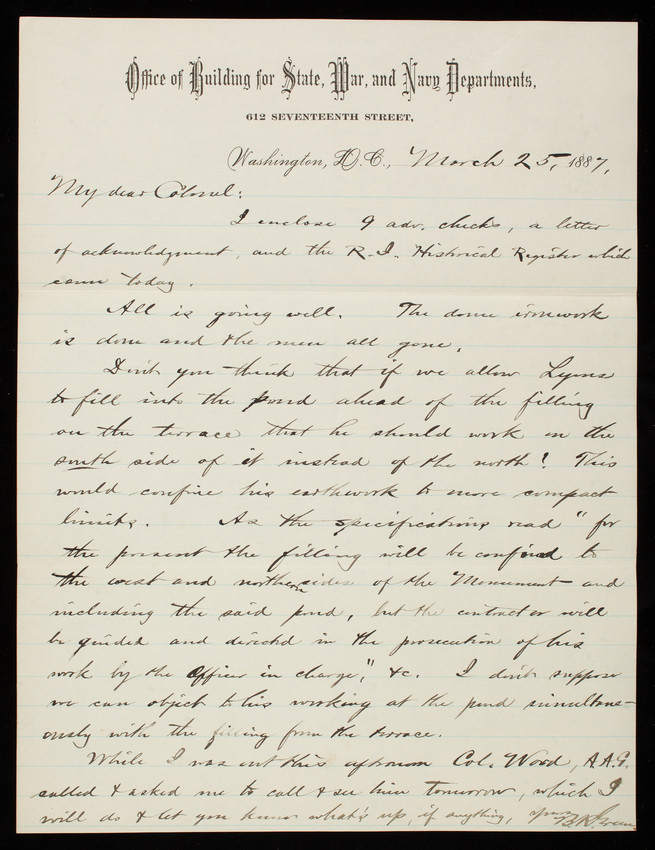 Office of Building for State, War, and Navy Departments,
612 SEVENTEENTH STREET,
Washington, D.C., March 25, 1887,
My dear Colonel:
I enclose 9 adv. checks, a letter
of acknowledgment, and the R.I. Historical Register which
came today.
All is going well. The dome ironwork
is done and the men all gone.
Don't you think that if we allow Lyons
to fill into the pond ahead of the filling
on the terrace that he should work on the
south side of it instead of the north! This
would confine his earthwork to more compact
limits. As the specifications read "for
the present the filling will be confined to
the west and northern sides of the Monument and
including the said pond, but the contractor will
be guided and directed in the prosecution of his
work by the Officer in charge," &c. I don't suppose
we can object to his working at the pond simultane-
ously with the filling from the terrace.
While I was out this afternoon Col. Wood, A.A.G.
called & asked me to call & see him tomorrow, which I
will do & let you know what's up, if anything, Yours
B.R. Green